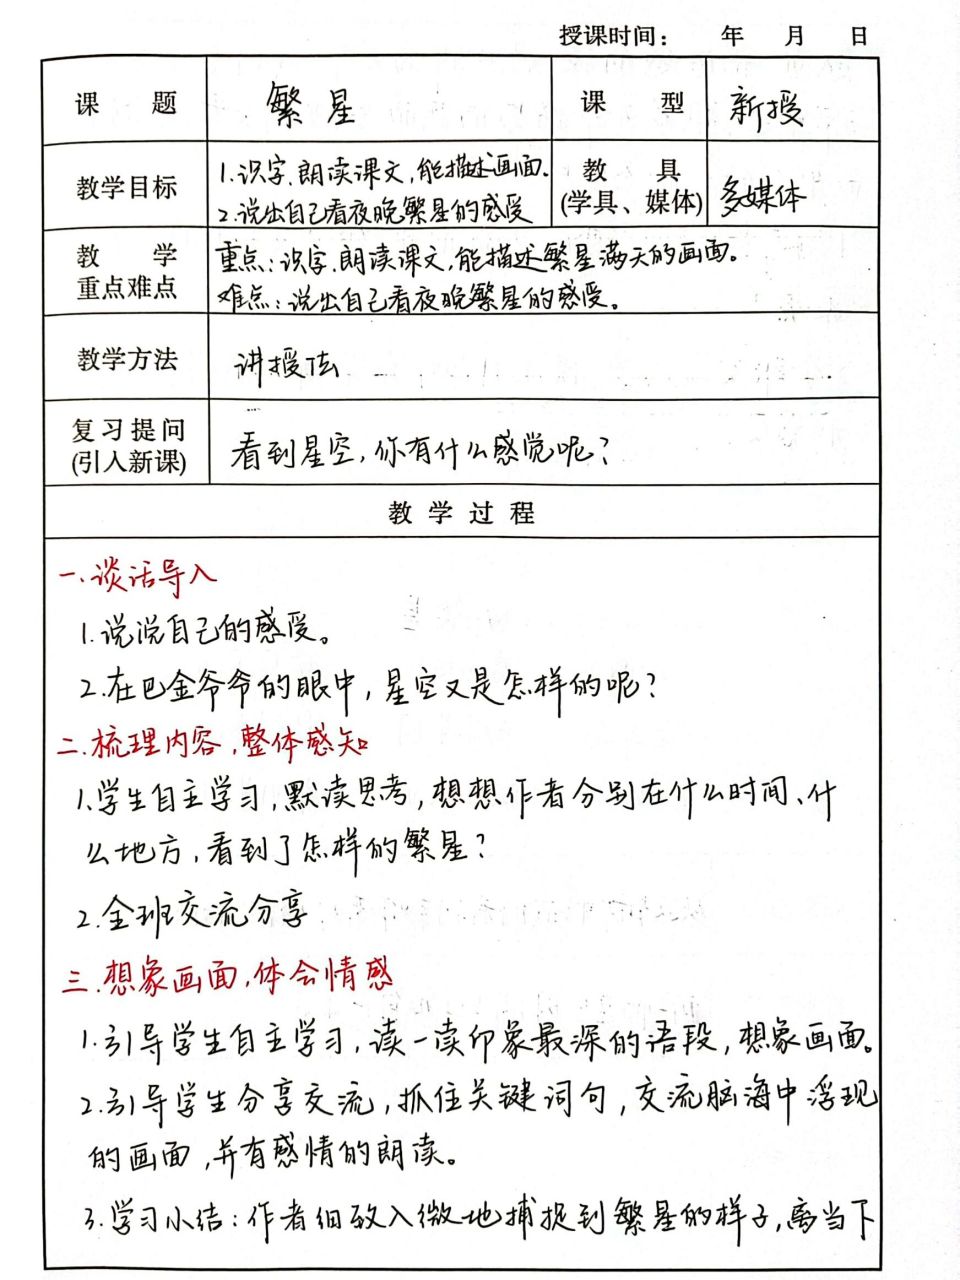 授课时间： 年 月 日
课 题 繁星 课 型 新授
教学目标 1.识字、朗读课文,能描述画面。
2.说出自己看夜晚繁星的感受
教 具
(学具、媒体) 多媒体
教 学
重点难点
重点:识字、朗读课文,能描述繁星满天的画面。
难点:说出自己看夜晚繁星的感受。
教学方法 讲授法
复习提问
(引入新课) 看到星空,你有什么感觉呢?
教 学 过 程
一.谈话导入
1.说说自己的感受。
2.在巴金爷爷的眼中,星空又是怎样的呢?
二.梳理内容,整体感知
1.学生自主学习,默读思考,想想作者分别在什么时间、什
么地方,看到了怎样的繁星?
2.全班交流分享
三.想象画面,体会情感
1.引导学生自主学习,读一读印象最深的语段,想象画面。
2.引导学生分享交流,抓住关键词句,交流脑海中浮现
的画面,并有感情的朗读。
3.学习小结:作者细致入微地捕捉到繁星的样子,离当下